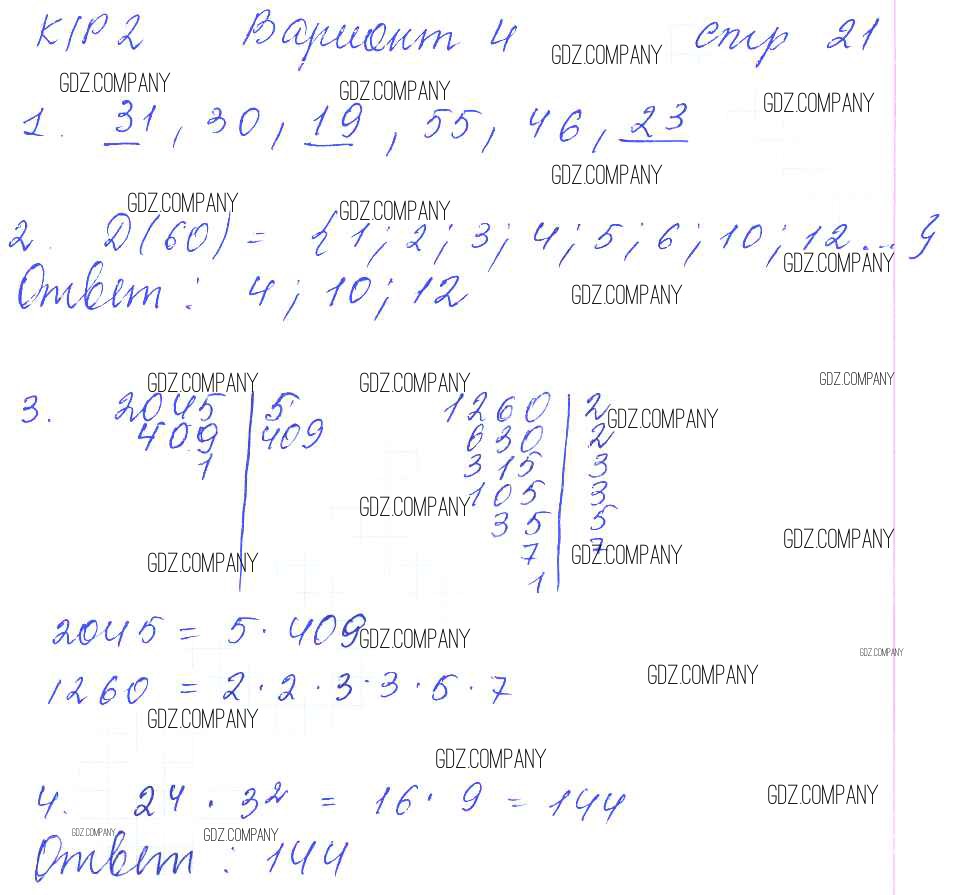 К/Р 2 Вариант 4 стр 21
GDZ.COMPANY GDZ.COMPANY GDZ.COMPANY GDZ.COMPANY
1. 31, 30, 19, 55, 46, 23
GDZ.COMPANY GDZ.COMPANY GDZ.COMPANY
2. D(60) = {1; 2; 3; 4; 5; 6; 10; 12...}
GDZ.COMPANY
Ответ: 4; 10; 12
GDZ.COMPANY
GDZ.COMPANY GDZ.COMPANY GDZ.COMPANY
3. 2045 | 5 1260 | 2
GDZ.COMPANY
409 | 409 630 | 2
1 315 | 3
105 | 3
GDZ.COMPANY
35 | 5
GDZ.COMPANY
7 | 7
GDZ.COMPANY GDZ.COMPANY
1
2045 = 5 · 409
GDZ.COMPANY GDZ.COMPANY
1260 = 2 · 2 · 3 · 3 · 5 · 7
GDZ.COMPANY
GDZ.COMPANY
GDZ.COMPANY
4. 2⁴ · 3² = 16 · 9 = 144
GDZ.COMPANY
GDZ.COMPANY GDZ.COMPANY
Ответ: 144